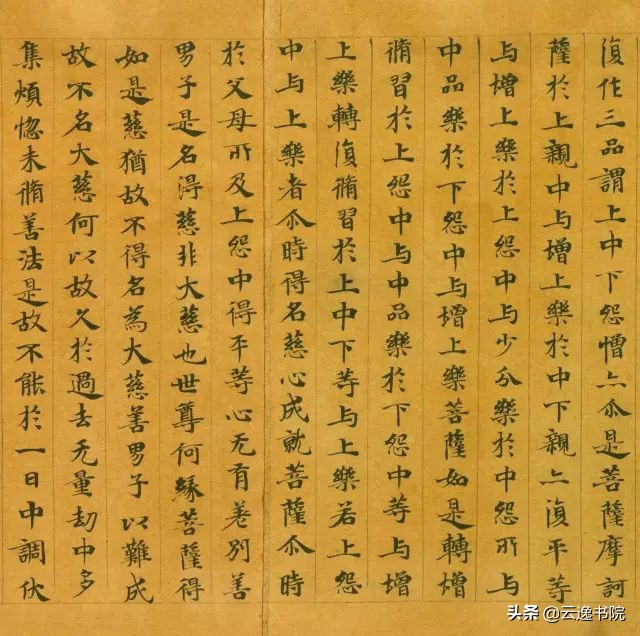 復作三品謂上中下怨憎亦尒是菩薩摩訶
薩於上親中与增上樂於中下親亦復平等
与增上樂於上怨中与少分樂於中怨所与
中品樂於下怨中与增上樂菩薩如是轉增
脩習於上怨中与中品樂於下怨中等与增
上樂轉復脩習於上中下等与上樂若上怨
中与上樂者尒時得名慈心成就菩薩尒時
於父母所及上怨中得平等心无有差別善
男子是名得慈非大慈也世尊何緣菩薩得
如是慈猶故不得名為大慈善男子以難成
故不名大慈何以故久於過去无量劫中多
集煩惱未脩善法是故不能於一日中調伏
头条 @云逸书院